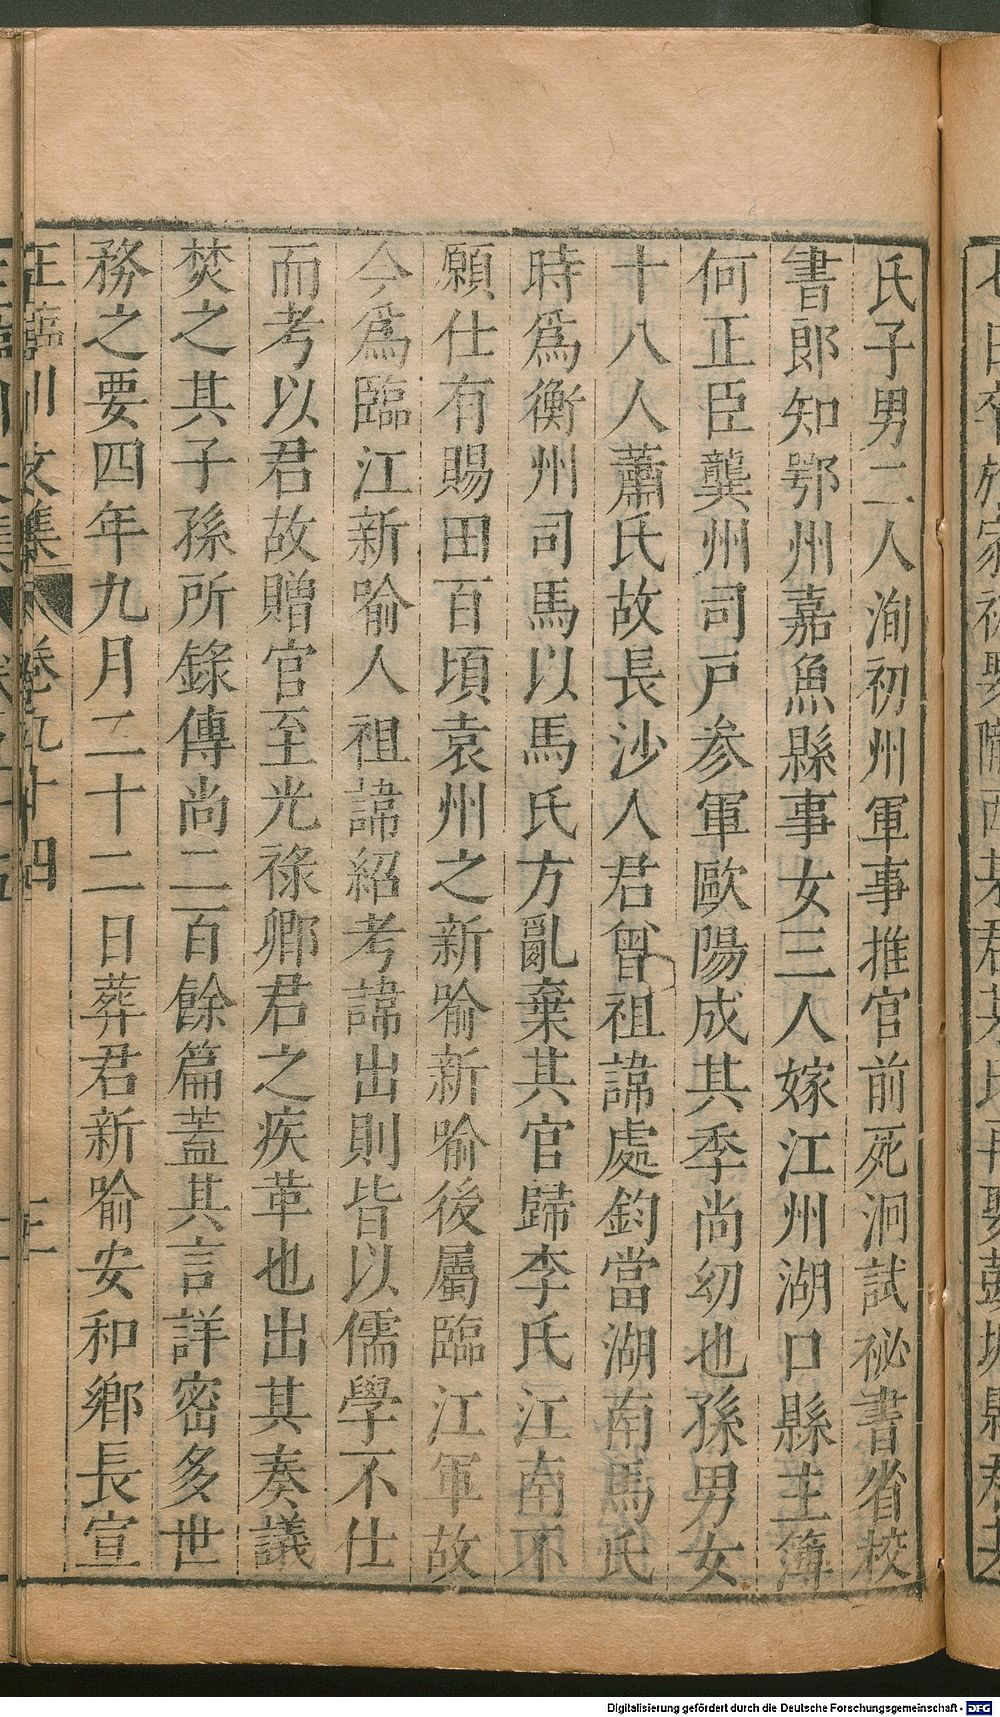 氏子男二人洵初州軍事推官前死泂試祕書省校
書郎知鄂州嘉魚縣事女三人嫁江州湖口縣主簿
何正臣龔州司戸參軍歐陽成其季尚幼也孫男女
十八人蕭氏故長沙人君曾祖諱處鈞當湖南馬氏
時爲衡州司馬以馬氏方亂棄其官歸李氏江南不
願仕有賜田百頃袁州之新喻新喻後屬臨江軍故
今爲臨江新喻人祖諱紹考諱出則皆以儒學不仕
而考以君故贈官至光祿卿君之疾革也出其奏議
焚之其子孫所錄傳尚二百餘篇蓋其言詳密多世
務之要四年九月二十二日葬君新喻安和鄉長宣
王臨川文集 卷九十四 三
Digitalisierung gefördert durch die Deutsche Forschungsgemeinschaft - DFG